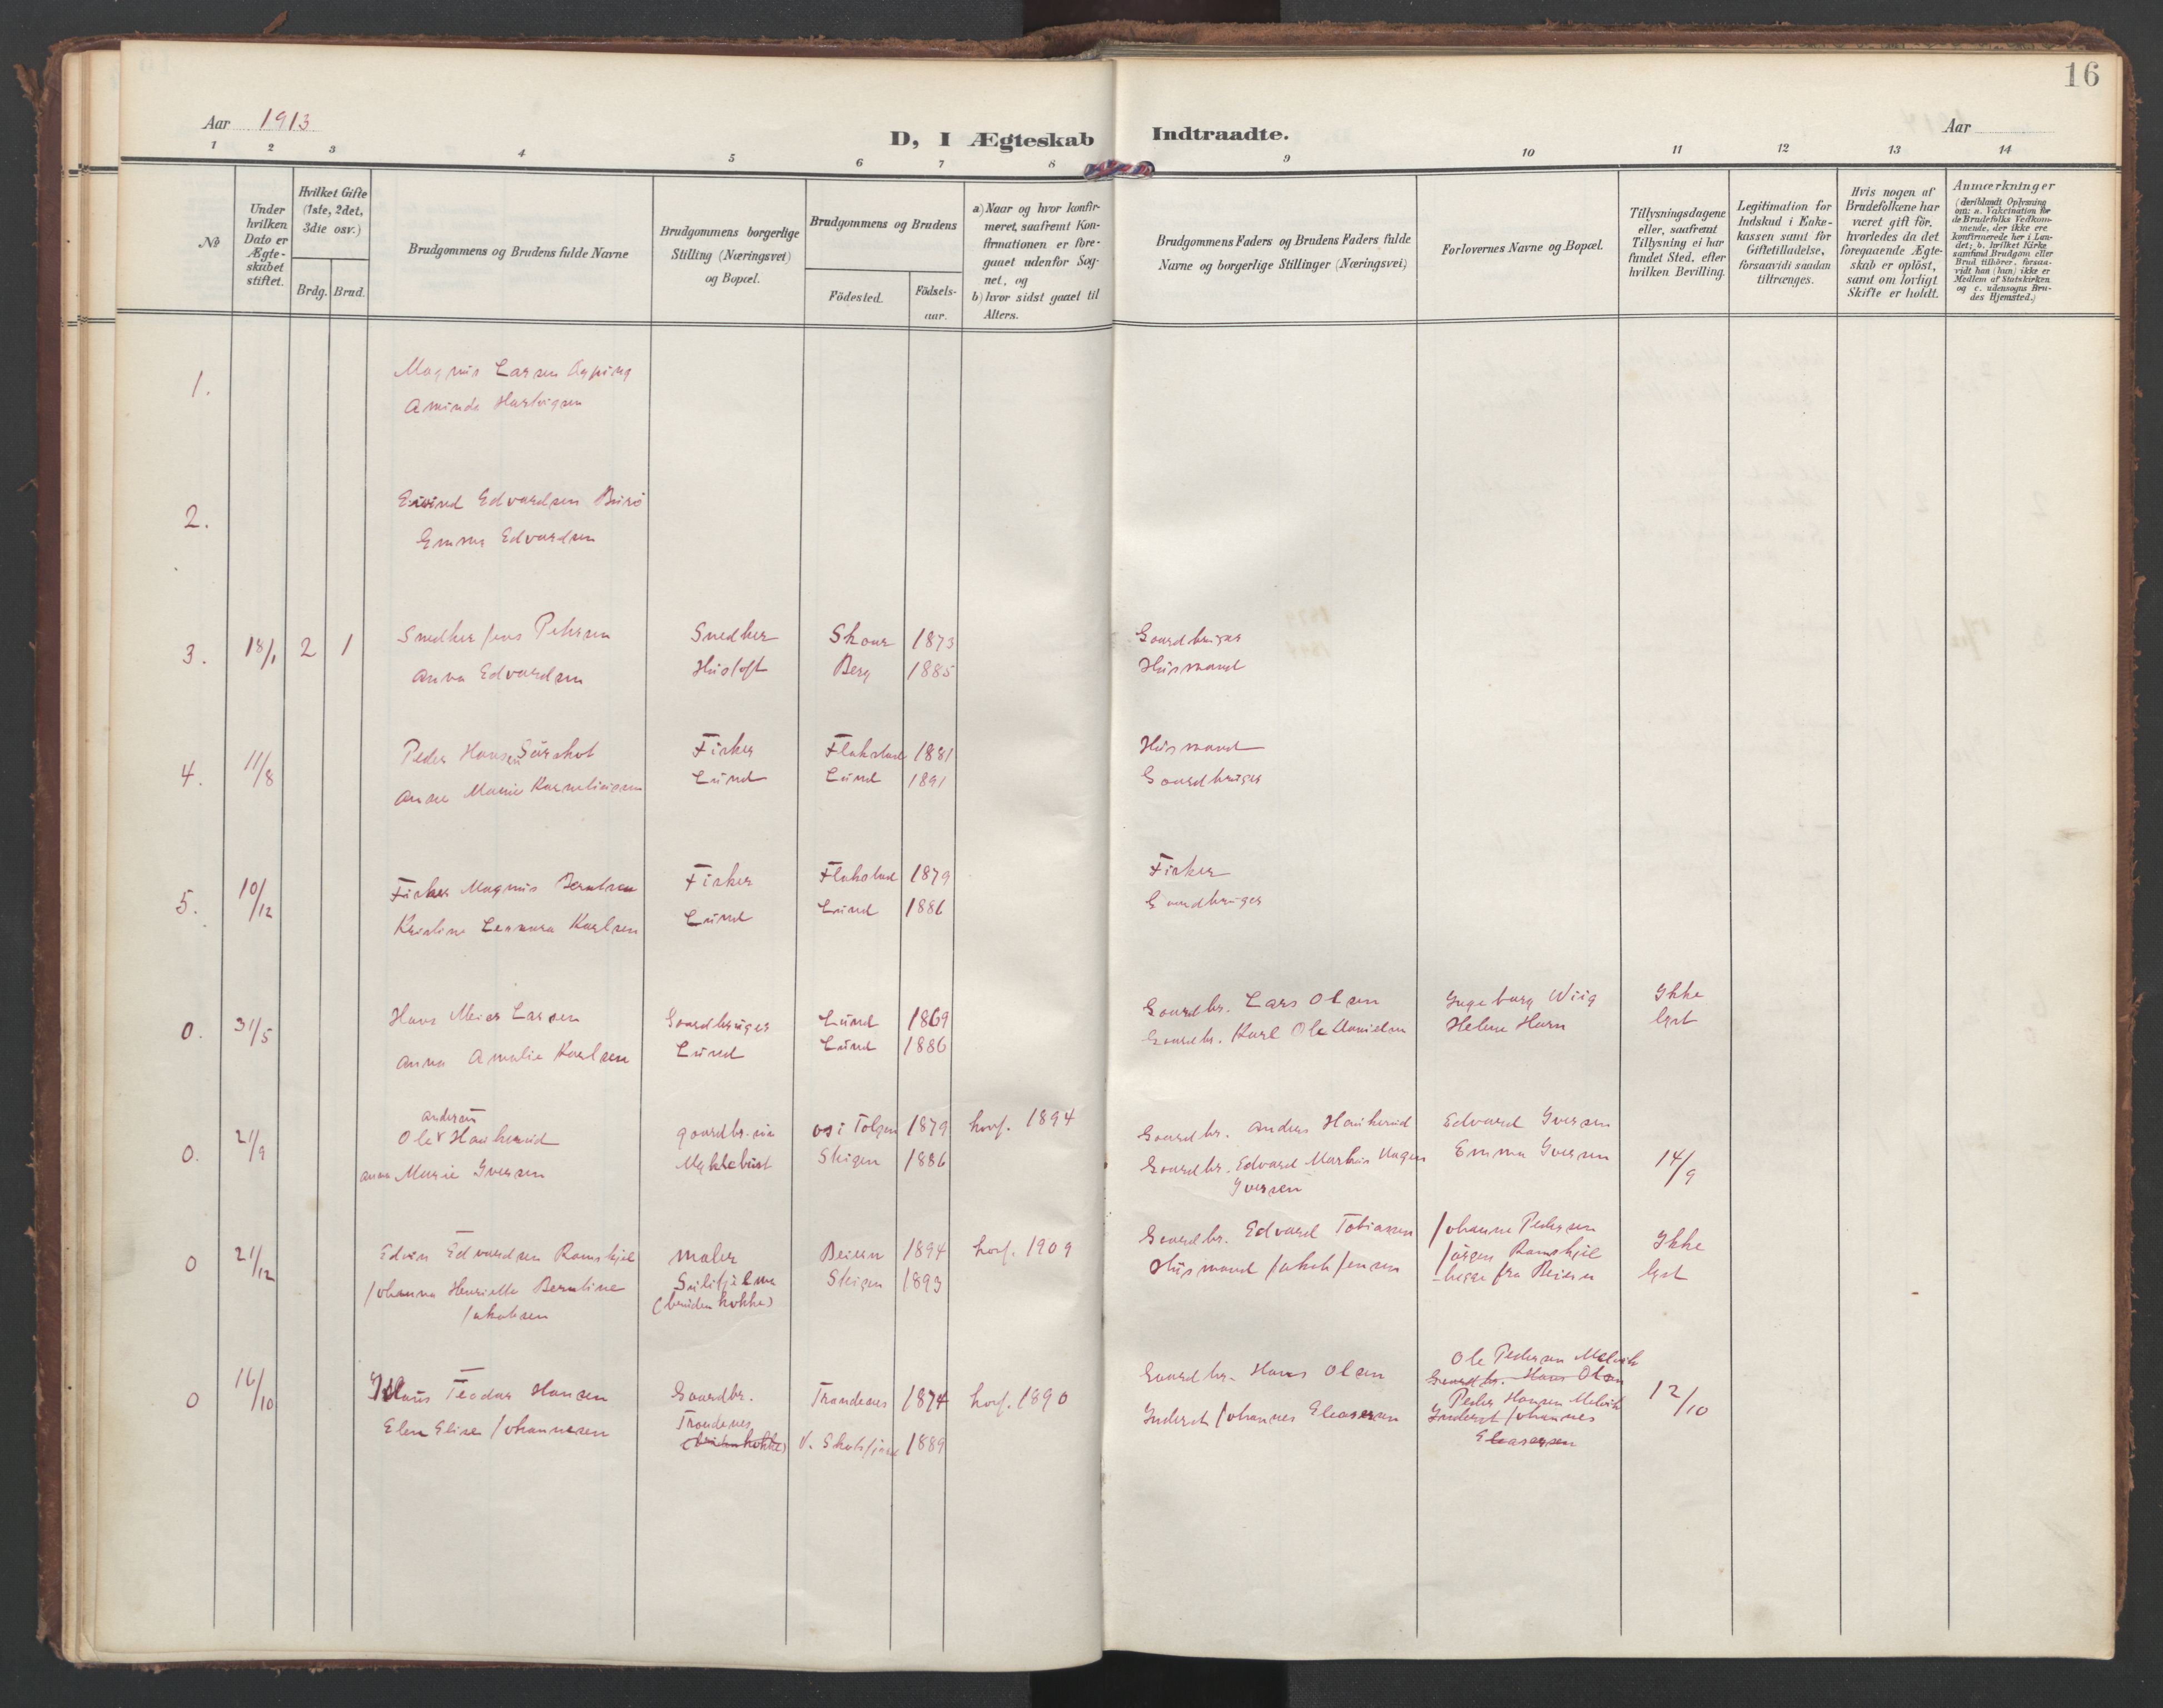 16
Aar 1913
D, I Ægteskab Indtraadte.
Aar
1 2 3 4 5 6 7 8 9 10 11 12 13 14
No
Under hvilken Dato er Ægteskabet stiftet.
Hvilket Gifte (1ste, 2det, 3die osv.)
Brdg. Brud.
Brudgommens og Brudens fulde Navne
Brudgommens borgerlige Stilling (Næringsvei) og Bopæl.
Brudgommens og Brudens
Födested.
Födselsaar.
a) Naar og hvor konfirmeret, saafremt Konfirmationen er foregaaet udenfor Sognet, og
b) hvor sidst gaaet til Alters.
Brudgommens Faders og Brudens Faders fulde Navne og borgerlige Stillinger (Næringsvei)
Forlovernes Navne og Bopæl.
Tillysningsdagene eller, saafremt Tillysning ei har fundet Sted, efter hvilken Bevilling.
Legitimation for Indskud i Enkekassen samt for Giftetilladelse, forsaavidt saadan tiltrænges.
Hvis nogen af Brudefolkene har været gift för, hvorledes da det foregaaende Ægteskab er oplöst, samt om lovligt Skifte er holdt.
Anmærkninger (deriblandt Oplysning om: a. Vakcination for de Brudefolks Vedkommende, der ikke ere konfirmerede her i Landet; b. hvilket Kirkesamfund Brudgom eller Brud tilhörer, forsaavidt han (hun) ikke er Medlem af Statskirken og c. udensogns Brudes Hjemsted.)
1.
Magnus Larsen
Aminda Hartvigsen
2.
Eivind Edvardsen
Emma Edvardsen
3. 18/1 2 1 Snedker Jens Petersen Snedker Skoar 1873 Gaardbruger
Anna Edvardsen Husloft Berg 1885 Husmand
4. 11/8 Peder Hansen Fisker Flakstad 1881 Husmand
Anne Marie Korneliussen Lund Lund 1891 Gaardbruger
5. 10/12 Fisker Magnus Berntsen Fisker Flakstad 1879 Fisker
Kristine Leonora Karlsen Lund Lund 1886 Gaardbruger
0. 31/5 Hans Meier Larsen Gaardbruger Lund 1869 Gaardbr. Lars Olsen Ingeborg Wiig Ikke
Anna Amalie Karlsen Lund Lund 1886 Gaardbr. Karl Ole Danielsen Helene Horn lyst
0. 21/9 Ole Andersen Haukerud gaardbr. os i Tolgen 1879 konf. 1894 Gaardbr. Anders Haukerud Edvard Iversen
anna Marie Iversen Myklebust Steigen 1886 Gaardbr. Edvard Markus Emma Iversen 14/9
Iversen
0 21/12 Edvin Edvardsen Ramskjel maler Beiern 1894 konf. 1909 Gaardbr. Edvard Tobiassen Johanne Pedersen
Johanna Henriette Berntine Sulitjelma Steigen 1893 Husmand Jakob Jensen Jörgen Ramskjel Ikke
Jakobsen (bruden kokke) begge fra Beiern lyst
0 16/10 Teodor Hansen Gaardbr. Trondenes 1874 konf. 1890 Gaardbr. Hans Olsen Ole Pedersen Melvik
Gaardbr. Hans Olsen
Elen Elise Johannesen Trondenes Inderst Johannes Eleasersen Peder Hansen Melvik 12/10
(bruden kokke) 1889 Inderst Johannes
Eleasersen